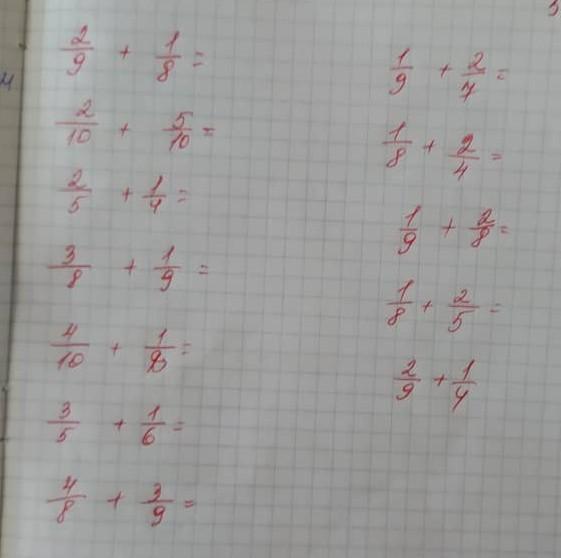 2/9 + 1/8 =
2/10 + 5/10 =
2/5 + 1/4 =
3/8 + 1/9 =
4/10 + 1/ =
3/5 + 1/6 =
4/8 + 3/9 =
1/9 + 2/7 =
1/8 + 2/4 =
1/9 + 2/8 =
1/8 + 2/5 =
2/9 + 1/4